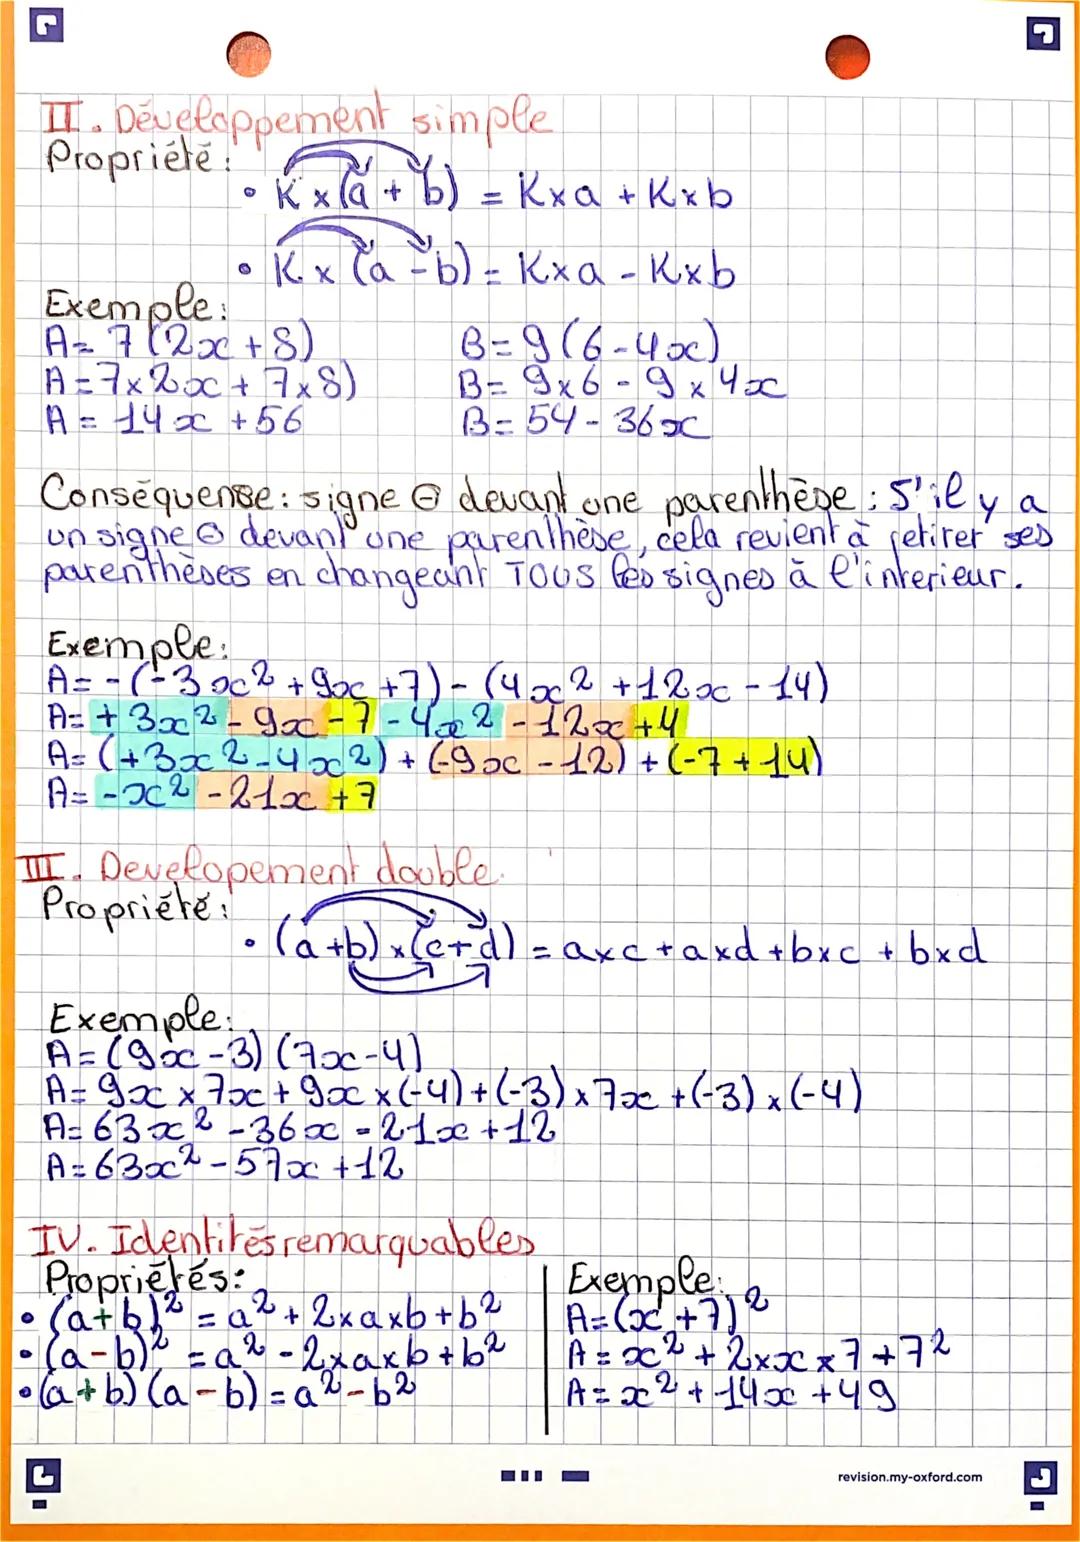 II. Développement simple
Propriété :
• K x (a + b) = K x a + K x b
• K x (a - b) = K x a - K x b
Exemple :
A = 7 (2x + 8)
A = 7 x 2x + 7 x 8)
A = 14x + 56
B = 9 (6 - 4x)
B = 9 x 6 - 9 x 4x
B = 54 - 36x
Conséquense : signe ⊖ devant une parenthèse : S'il y a
un signe ⊖ devant une parenthèse, cela revient à retirer ses
parenthèses en changeant TOUS les signes à l'interieur.
Exemple :
A = - (-3x² + 9x + 7) - (4x² + 12x - 14)
A = + 3x² - 9x - 7 - 4x² - 12x + 4
A = (+3x² - 4x²) + (-9x - 12) + (-7 + 14)
A = -x² - 21x + 7
III. Developement double.
Propriété :
• (a + b) x (c + d) = a x c + a x d + b x c + b x d
Exemple :
A = (9x - 3) (7x - 4)
A = 9x x 7x + 9x x (-4) + (-3) x 7x + (-3) x (-4)
A = 63x² - 36x - 21x + 12
A = 63x² - 57x + 12
IV. Identités remarquables
Propriétés :
• (a + b)² = a² + 2 x a x b + b²
• (a - b)² = a² - 2 x a x b + b²
• (a + b) (a - b) = a² - b²
Exemple :
A = (x + 7)²
A = x² + 2 x x x 7 + 7²
A = x² + 14x + 49
revision.my-oxford.com